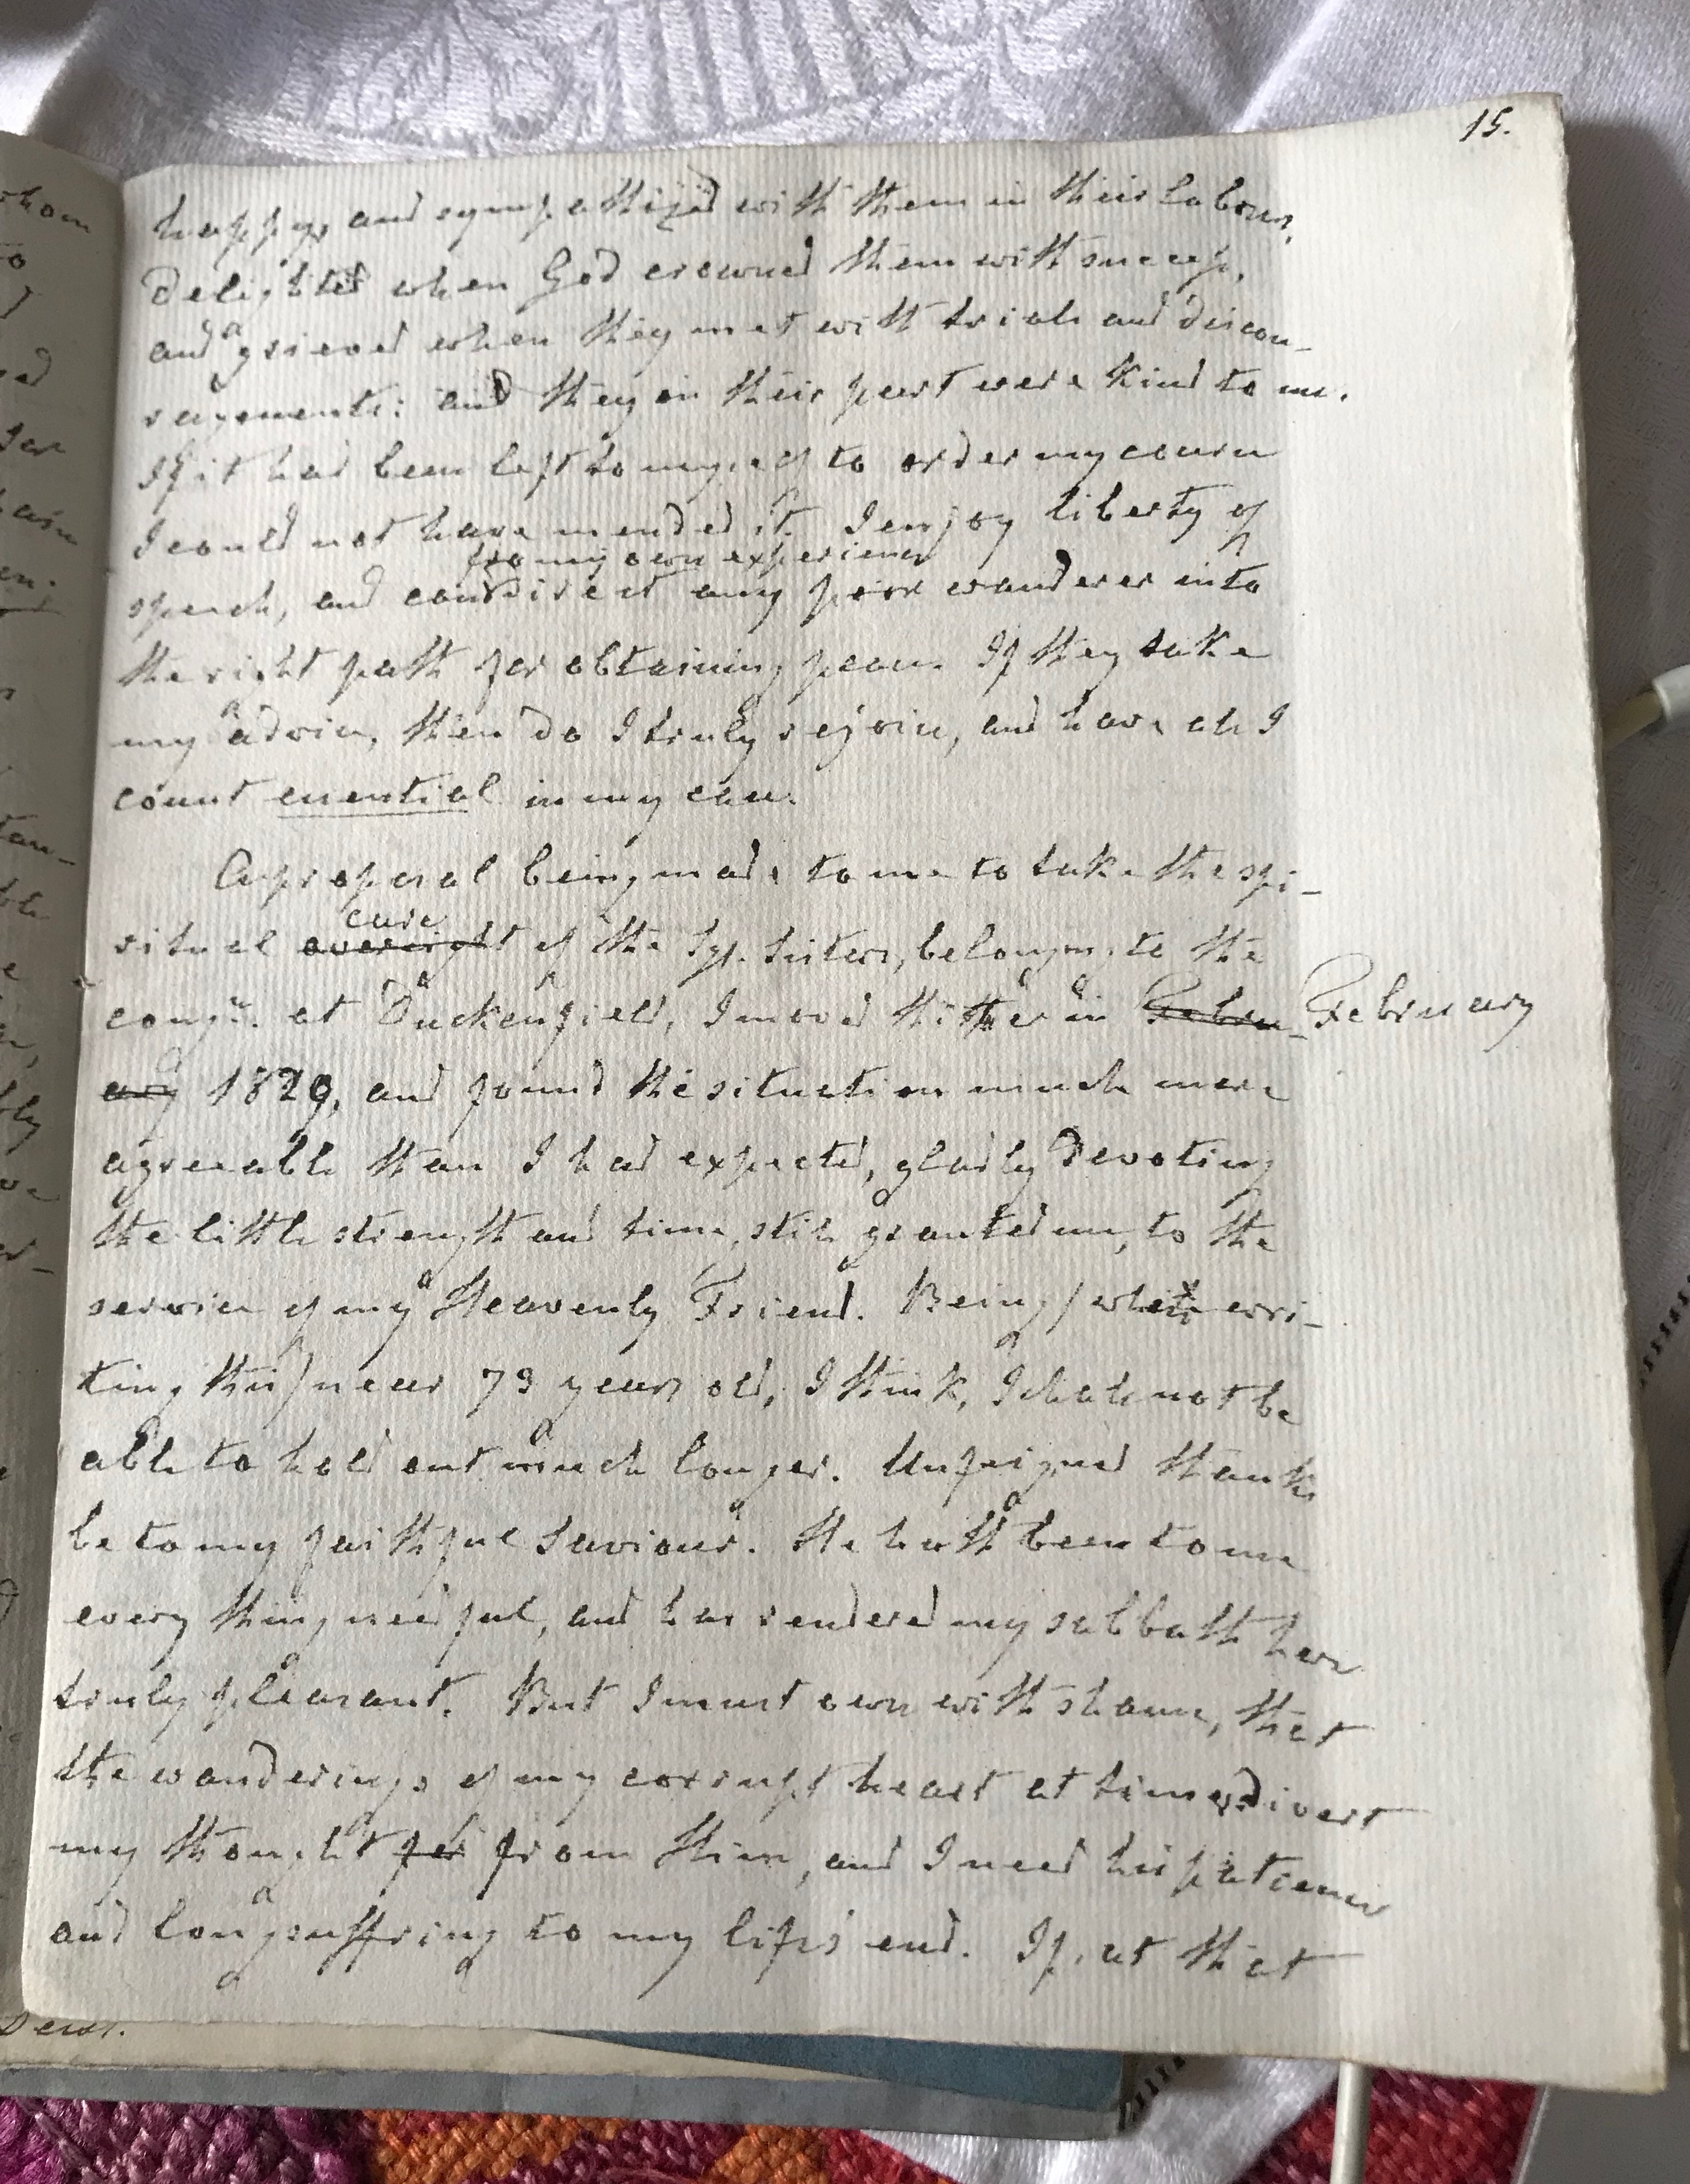 15.
happy, and sympathized with them in their labours,
delighted when God crowned them with success,
and grieved when they met with trials and discou-
ragements: and they on their part were kind to me.
If it had been left to myself to order my course
I could not have mended it. I enjoy liberty of
from my own experience
speech, and can direct any poor wanderer into
the right path for obtaining peace. If they take
my advice, then do I truly rejoice, and have all I
count essential in my case.
A proposal being made to me to take the spi-
care
ritual oversight of the Sgl. Sisters, belonging to the
congn. at Duckenfield, I moved thither in Febru- February
ary 1829, and found the situation much more
agreeable than I had expected, gladly devoting
the little strength and time, still granted me, to the
service of my Heavenly Friend. Being (when wri-
ting this) near 73 years old, I think, I shall not be
able to hold out much longer. Unfeigned thanks
be to my faithful Saviour. He hath been to me
every thing needful, and has rendered my sabbath here
truly pleasant. But I must own with shame, that
the wanderings of my corrupt heart at times divert
my thought for from Him, and I need his patience
and longsuffring to my life's end. If, at that
whom
to
ed
for
tan-
ble
bly
ve
er-